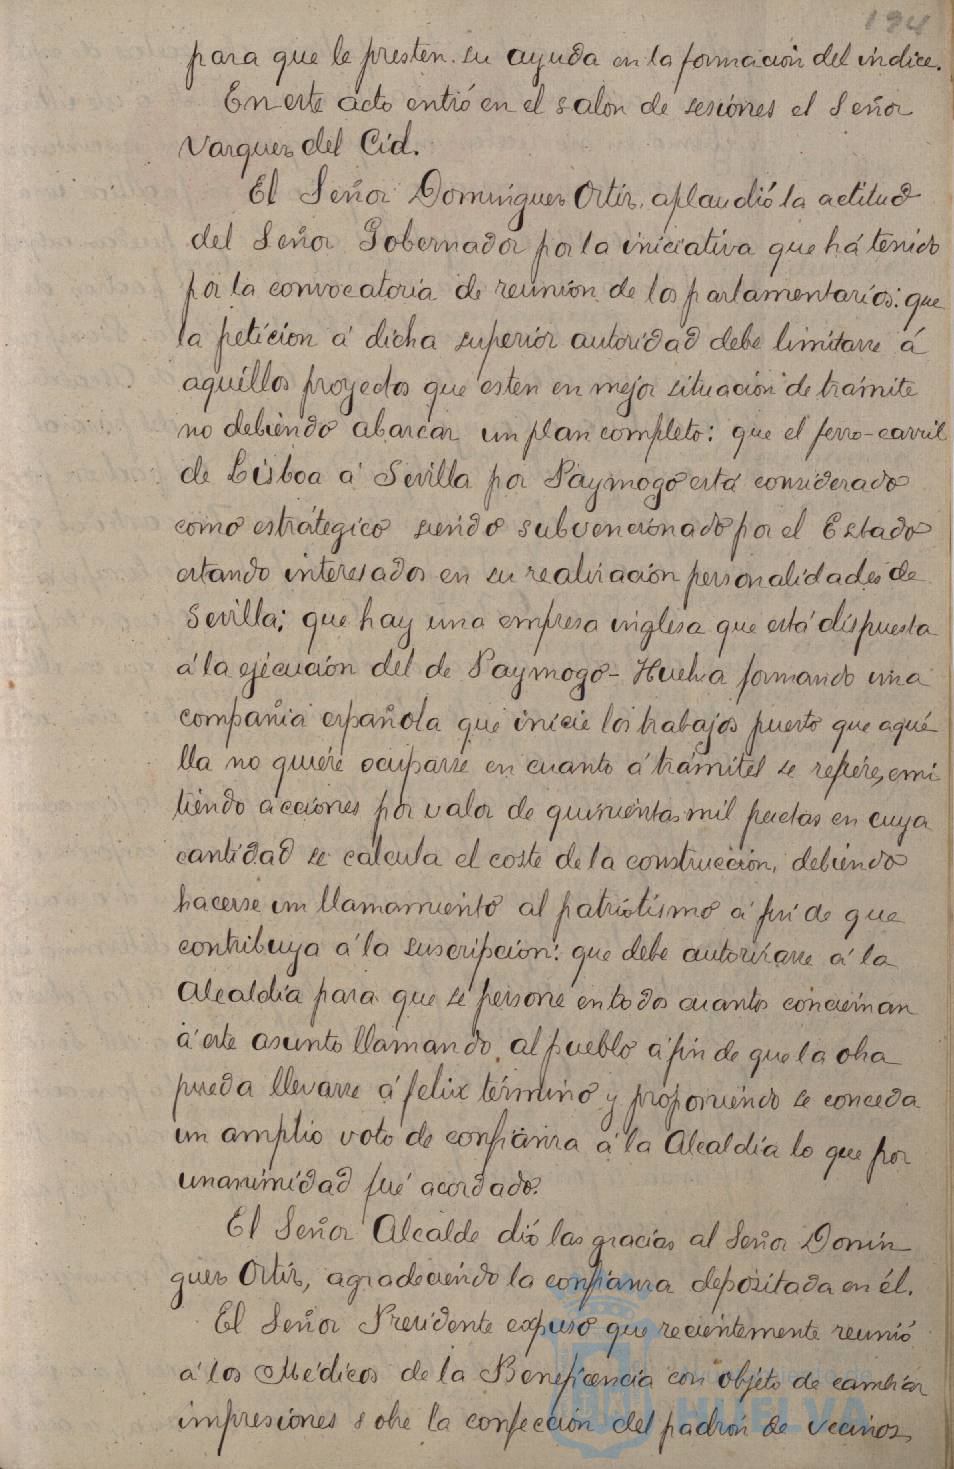 194
para que le presten su ayuda en la formación del indice.
En este acto entró en el salon de sesiónes el Señor
Vazquez del Cid.
El Señor Dominguez Ortíz, aplaudió la actitud
del Señor Gobernador por la iniciativa que há tenido
por la convocatoria de reunión de los parlamentarios: que
la petición á dicha superiór autoridad debe limitarse á
aquéllos proyectos que esten en mejor situación de trámite
no debiendo abarcar un plan completo: que el ferro-carril
de Lisboa á Sevilla por Paymogo está considerado
como estratégico siendo subvencionado por el Estado
estando interesados en su realización personalidades de
Sevilla; que hay una empresa inglesa que está dispuesta
á la ejecución del de Paymogo-Huelva formando una
compañia española que inicie los trabajos puesto que aqué
lla no quiére ocuparse en cuanto á trámites se refiere, emi
tiendo acciónes por valor de quinientas mil pesetas en cuya
cantidad se calcula el coste de la construcción, debiendo
hacerse un llamamiento al patriótismo á fin de que
contribuya á la suscripción: que debe autorizarse á la
Alcaldía para que se persone en todos cuantos conciernan
á este asunto llamando al pueblo á fin de que la obra
pueda llevarse á felix término y proponiéndo se conceda
un amplio voto de confianza á la Alcaldía lo que por
unanimidad fué acordado.
El Señor Alcalde dió las gracias al Señor Domin
guez Ortíz, agradeciéndo la confianza depositada en él.
El Señor Presidente expuso que recientemente reunió
á los Médicos de la Beneficencia con objeto de cambiar
impresiónes sobre la confección del padrón de vecinos,
Ayuntamiento de
HUELVA